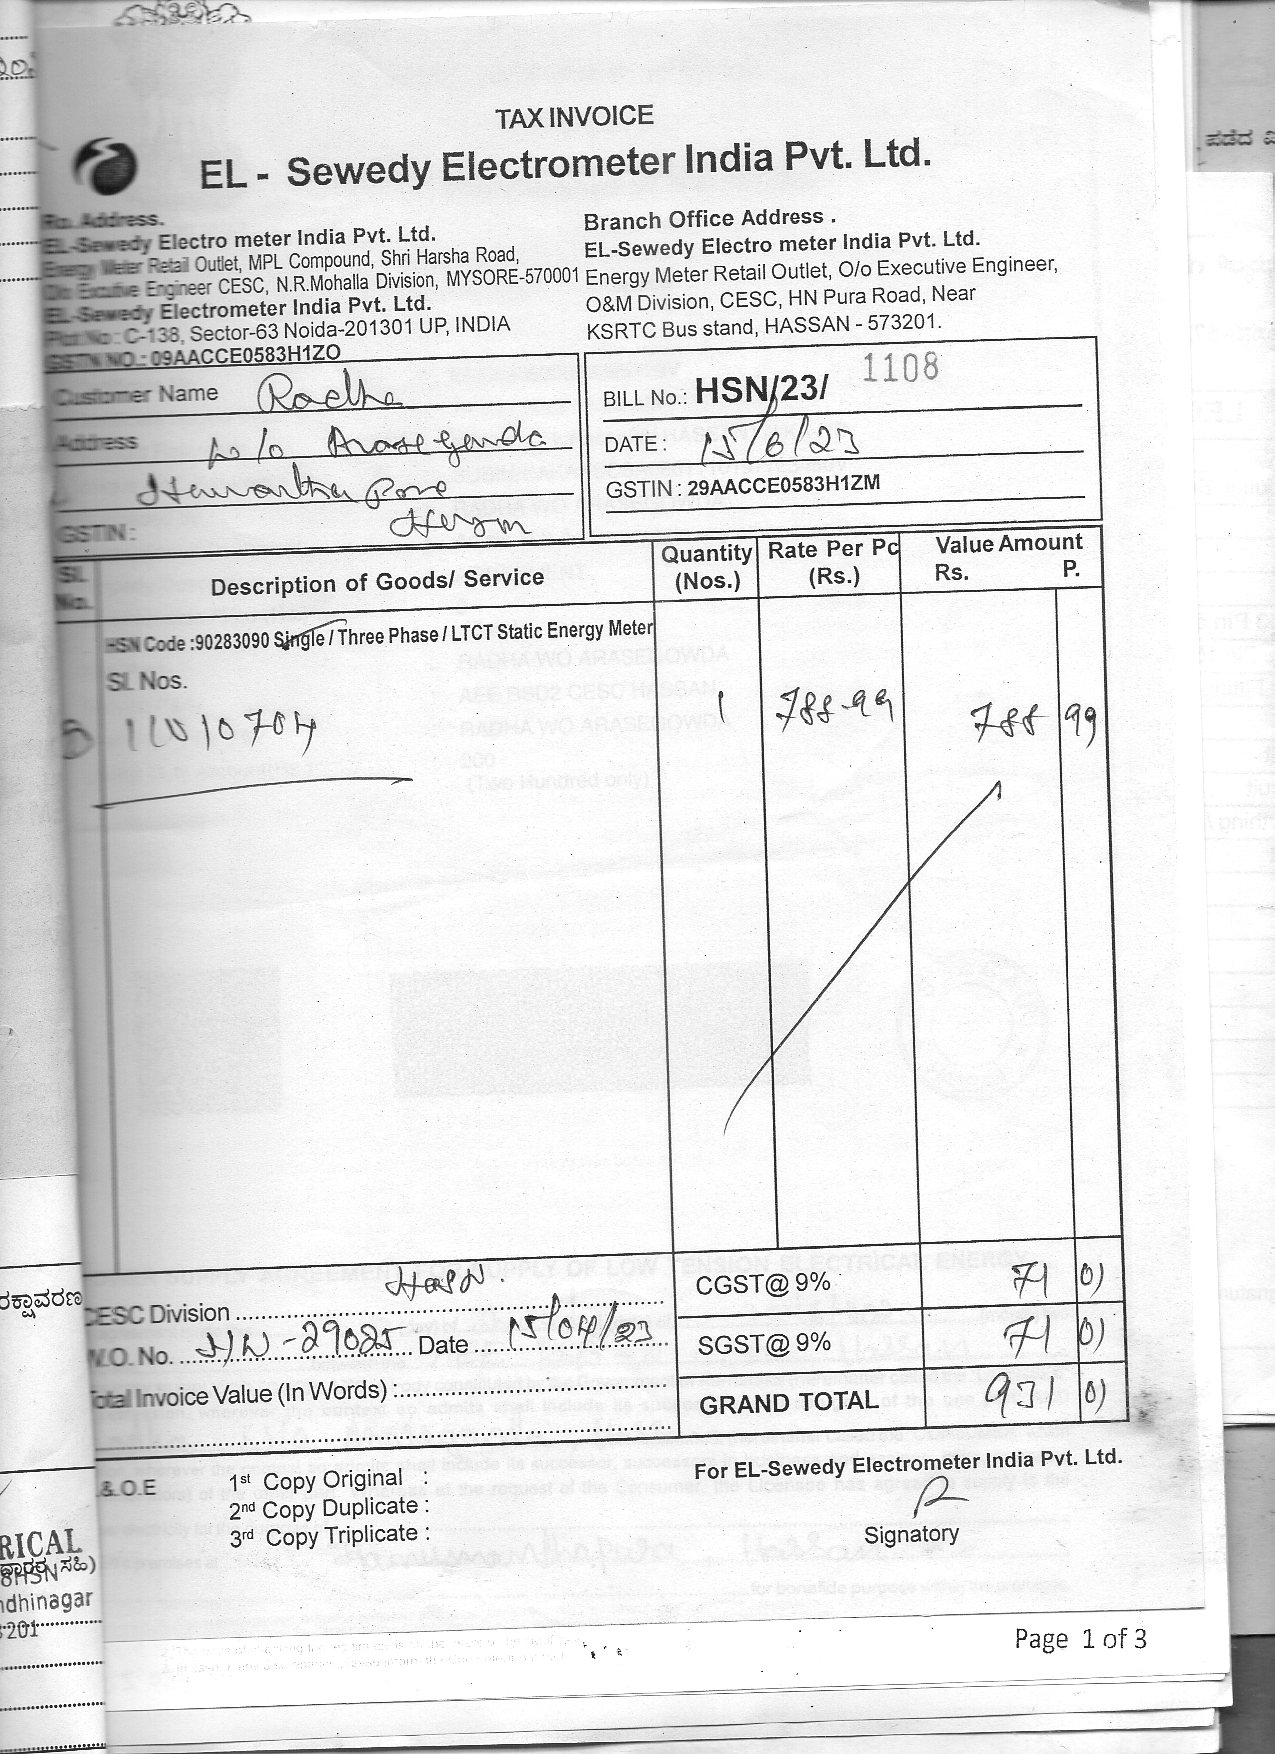 TAX INVOICE
EL - Sewedy Electrometer India Pvt. Ltd.
Ro. Address.
EL-Sewedy Electro meter India Pvt. Ltd.
Energy Meter Retail Outlet, MPL Compound, Shri Harsha Road,
O/o Executive Engineer CESC, N.R.Mohalla Division, MYSORE-570001
EL-Sewedy Electrometer India Pvt. Ltd.
Plot No : C-138, Sector-63 Noida-201301 UP, INDIA
GSTN NO.: 09AACCE0583H1ZO
Branch Office Address .
EL-Sewedy Electro meter India Pvt. Ltd.
Energy Meter Retail Outlet, O/o Executive Engineer,
O&M Division, CESC, HN Pura Road, Near
KSRTC Bus stand, HASSAN - 573201.
Customer Name Radha
Address w/o Arasegowda
GSTIN :
BILL No.: HSN/23/ 1108
DATE : 15/6/23
GSTIN : 29AACCE0583H1ZM
Sl. No. Description of Goods/ Service Quantity (Nos.) Rate Per Pc (Rs.) Value Amount Rs. P.
HSN Code :90283090 Single / Three Phase / LTCT Static Energy Meter
SI. Nos.
11010704 1 788-99 788 99
CESC Division Hasn. CGST@ 9% 71 01
W.O. No. HN-29025 Date 15/04/23 SGST@ 9% 71 01
Total Invoice Value (In Words) : GRAND TOTAL 931 01
&.O.E
1st Copy Original :
2nd Copy Duplicate :
3rd Copy Triplicate :
For EL-Sewedy Electrometer India Pvt. Ltd.
Signatory
Page 1 of 3
RICAL
8HSN
ndhinagar
201